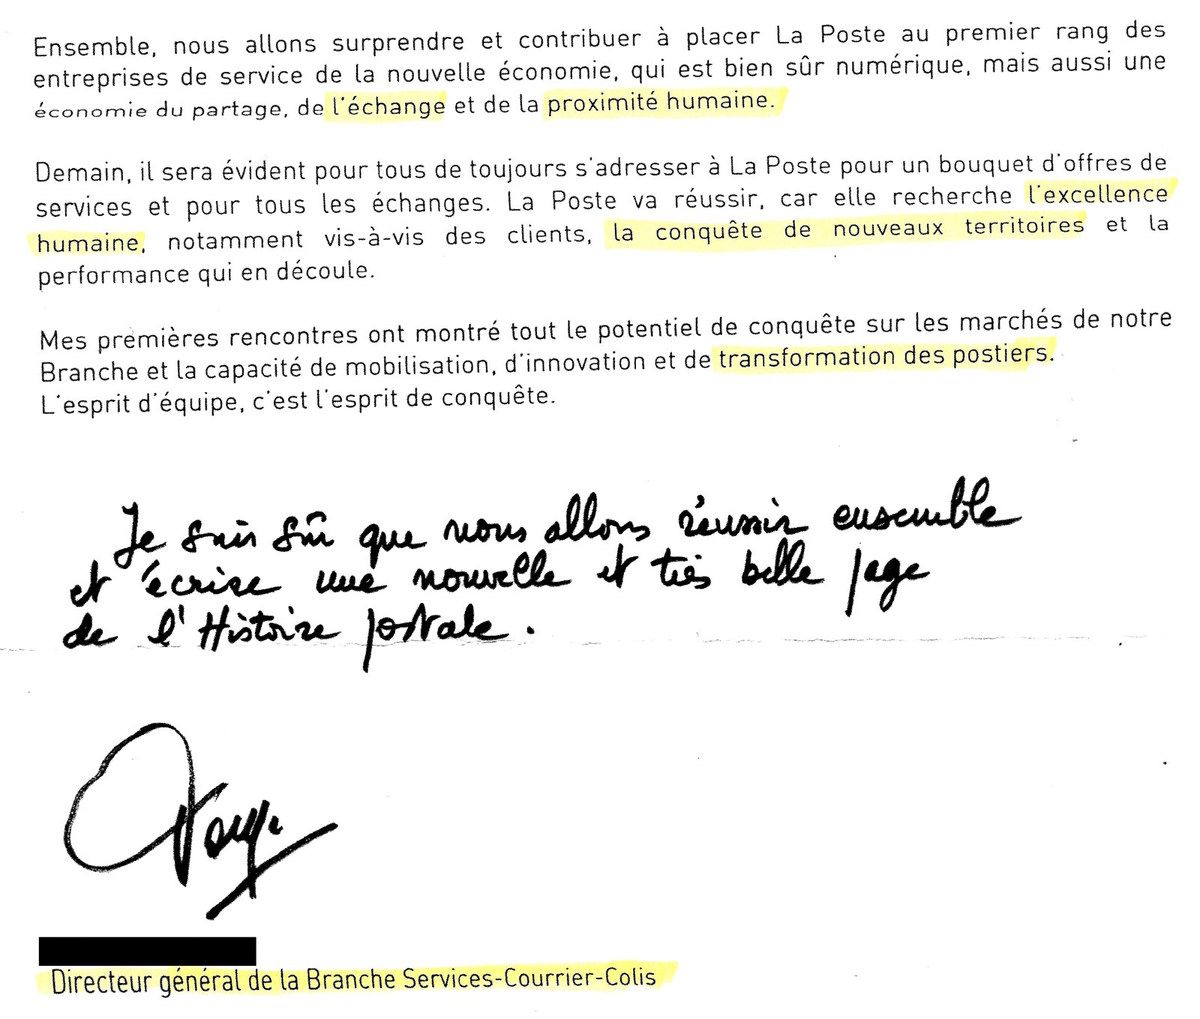 Ensemble, nous allons surprendre et contribuer à placer La Poste au premier rang des
entreprises de service de la nouvelle économie, qui est bien sûr numérique, mais aussi une
économie du partage, de l'échange et de la proximité humaine.
Demain, il sera évident pour tous de toujours s'adresser à La Poste pour un bouquet d'offres de
services et pour tous les échanges. La Poste va réussir, car elle recherche l'excellence
humaine, notamment vis-à-vis des clients, la conquête de nouveaux territoires et la
performance qui en découle.
Mes premières rencontres ont montré tout le potentiel de conquête sur les marchés de notre
Branche et la capacité de mobilisation, d'innovation et de transformation des postiers.
L'esprit d'équipe, c'est l'esprit de conquête.
Je suis sûr que nous allons réussir ensemble
et écrire une nouvelle et très belle page
de l'Histoire postale.
Directeur général de la Branche Services-Courrier-Colis